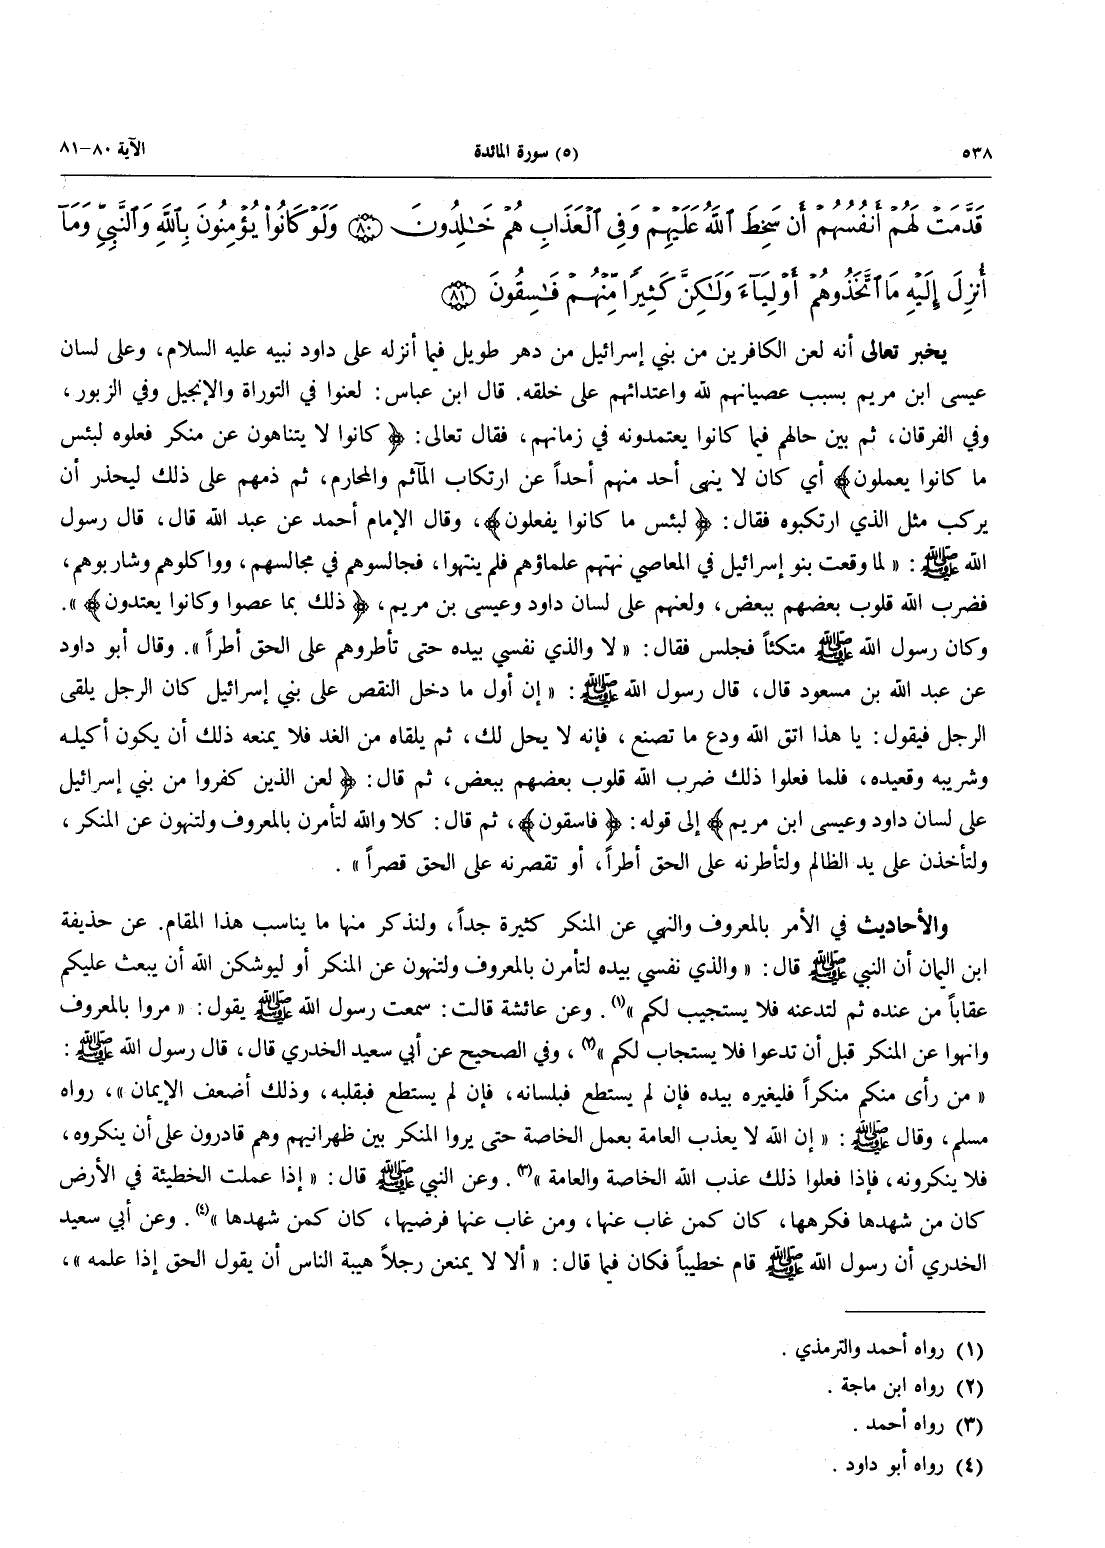 ٥٣٨ (٥) سورة المائدة الآية ٨٠-٨١
قَدَّمَتْ لَهُمْ أَنفُسُهُمْ أَن سَخِطَ ٱللَّهُ عَلَيْهِمْ وَفِى ٱلْعَذَابِ هُمْ خَـٰلِدُونَ ﴿٨٠﴾ وَلَوْ كَانُوا۟ يُؤْمِنُونَ بِٱللَّهِ وَٱلنَّبِىِّ وَمَآ
أُنزِلَ إِلَيْهِ مَا ٱتَّخَذُوهُمْ أَوْلِيَآءَ وَلَـٰكِنَّ كَثِيرًا مِّنْهُمْ فَـٰسِقُونَ ﴿٨١﴾
يخبر تعالى أنه لعن الكافرين من بني إسرائيل من دهر طويل فيما أنزله على داود نبيه عليه السلام، وعلى لسان
عيسى ابن مريم بسبب عصيانهم لله واعتدائهم على خلقه. قال ابن عباس: لعنوا في التوراة والإنجيل وفي الزبور،
وفي الفرقان، ثم بين حالهم فيما كانوا يعتمدونه في زمانهم، فقال تعالى: ﴿ كانوا لا يتناهون عن منكر فعلوه لبئس
ما كانوا يعملون﴾ أي كان لا ينهى أحد منهم أحداً عن ارتكاب المآثم والمحارم، ثم ذمهم على ذلك ليحذر أن
يركب مثل الذي ارتكبوه فقال: ﴿ لبئس ما كانوا يفعلون﴾، وقال الإمام أحمد عن عبد الله قال، قال رسول
الله ﷺ : « لما وقعت بنو إسرائيل في المعاصي نهتهم علماؤهم فلم ينتهوا، فجالسوهم في مجالسهم، وواكلوهم وشاربوهم،
فضرب الله قلوب بعضهم ببعض، ولعنهم على لسان داود وعيسى بن مريم، ﴿ ذلك بما عصوا وكانوا يعتدون﴾ ».
وكان رسول الله ﷺ متكئاً فجلس فقال: « لا والذي نفسي بيده حتى تأطروهم على الحق أطراً ». وقال أبو داود
عن عبد الله بن مسعود قال، قال رسول الله ﷺ : « إن أول ما دخل النقص على بني إسرائيل كان الرجل يلقى
الرجل فيقول: يا هذا اتق الله ودع ما تصنع، فإنه لا يحل لك، ثم يلقاه من الغد فلا يمنعه ذلك أن يكون أكيله
وشريبه وقعيده، فلما فعلوا ذلك ضرب الله قلوب بعضهم ببعض، ثم قال: ﴿ لعن الذين كفروا من بني إسرائيل
على لسان داود وعيسى ابن مريم﴾ إلى قوله: ﴿ فاسقون﴾، ثم قال: كلا والله لتأمرن بالمعروف ولتنهون عن المنكر ،
ولتأخذن على يد الظالم ولتأطرنه على الحق أطراً، أو تقصرنه على الحق قصراً » .
والأحاديث في الأمر بالمعروف والنهي عن المنكر كثيرة جداً، ولنذكر منها ما يناسب هذا المقام. عن حذيفة
ابن اليمان أن النبي ﷺ قال: « والذي نفسي بيده لتأمرن بالمعروف ولتنهون عن المنكر أو ليوشكن الله أن يبعث عليكم
عقاباً من عنده ثم لتدعنه فلا يستجيب لكم »(١). وعن عائشة قالت: سمعت رسول الله ﷺ يقول: « مروا بالمعروف
وانهوا عن المنكر قبل أن تدعوا فلا يستجاب لكم »(٢)، وفي الصحيح عن أبي سعيد الخدري قال، قال رسول الله ﷺ :
« من رأى منكم منكراً فليغيره بيده فإن لم يستطع فبلسانه، فإن لم يستطع فبقلبه، وذلك أضعف الإيمان »، رواه
مسلم، وقال ﷺ : « إن الله لا يعذب العامة بعمل الخاصة حتى يروا المنكر بين ظهرانيهم وهم قادرون على أن ينكروه،
فلا ينكرونه، فإذا فعلوا ذلك عذب الله الخاصة والعامة »(٣). وعن النبي ﷺ قال: « إذا عملت الخطيئة في الأرض
كان من شهدها فكرهها، كان كمن غاب عنها، ومن غاب عنها فرضيها، كان كمن شهدها »(٤). وعن أبي سعيد
الخدري أن رسول الله ﷺ قام خطيباً فكان فيما قال: « ألا لا يمنعن رجلاً هيبة الناس أن يقول الحق إذا علمه »،
(١) رواه أحمد والترمذي .
(٢) رواه ابن ماجة .
(٣) رواه أحمد .
(٤) رواه أبو داود .